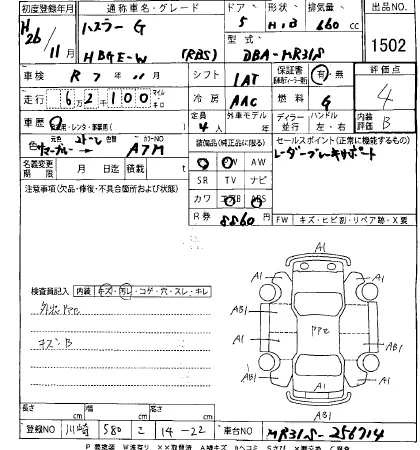 初度登録年月 通称車名・グレード ドア 形状 排気量 出品NO
H26 / 11月 ハスラー G 5 H.B 660 cc 1502
HBGE-W (RBS) 型式 DBA-MR31S
車検 R 7年 11月 シフト 1AT 保証書 有・無 評価点
走行 6万2千100 マイル キロ 冷房 AAC 燃料 G 4
車歴 自家用・レンタ・事業用( ) 定員 4人 外車モデル ディーラー 並行 ハンドル 左・右 内装評価 B
色 元色 2トーン 色替 カラーNO A7M
装備品(純正品に限る) セールスポイント(正常に機能するもの)
名義変更期限 月 日迄 積載 t PW AW レーダーブレーキサポート
注意事項(欠品・修復・不具合箇所および状態) SR TV ナビ
カワ ABS
R券 8860円 FW キズ・ヒビ割・リペア跡・X要
検査員記入 内装 キズ・汚レ・コゲ・穴・スレ・キレ
外装PPセ
キズ.B
A1
A1 A1
AB1 AB1
PPセ
A1 AB1
A1 A1
AB1
長さ cm 幅 cm 高さ cm
登録NO 川崎 580 こ 14-22 車台NO MR31S-256714